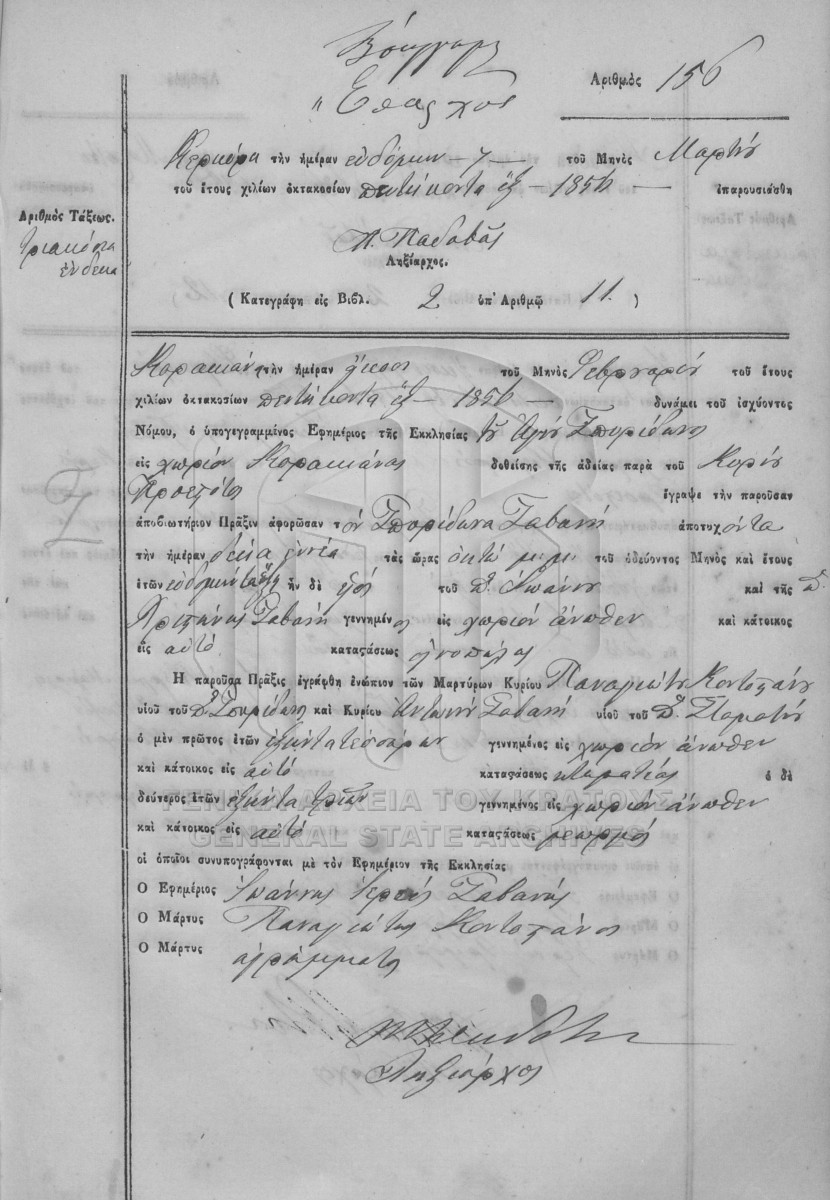 Ἔπαρχος
Ἀριθμὸς 156
Κερκύρᾳ τὴν ἡμέραν ἑβδόμην — 7 — τοῦ Μηνὸς Μαρτίου
τοῦ ἔτους χιλίων ὀκτακοσίων πεντήκοντα ἓξ — 1856 — ἐπαρουσιάσθη
Ἀριθμὸς Τάξεως.
τριακόσια
ἕνδεκα
Ληξίαρχος.
( Κατεγράφη εἰς Βιβλ. 2 ὑπ' Ἀριθμῷ 11. )
τὴν ἡμέραν εἴκοσι τοῦ Μηνὸς Φεβρουαρίου τοῦ ἔτους
χιλίων ὀκτακοσίων πεντήκοντα ἓξ — 1856 — δυνάμει τοῦ ἰσχύοντος
Νόμου, ὁ ὑπογεγραμμένος Ἐφημέριος τῆς Ἐκκλησίας τοῦ Ἁγίου Σπυρίδωνος
εἰς χωρίον Κορακιάνας δοθείσης τῆς ἀδείας παρὰ τοῦ Κυρίου
Προεστῶτος ἔγραψε τὴν παροῦσαν
ἀποβιωτήριον Πρᾶξιν ἀφορῶσαν τὸν Σπυρίδωνα Σαβανῆ ἀποτυχόντα
τὴν ἡμέραν δέκα ἐννέα τὰς ὥρας ὀκτὼ μ:μ: τοῦ ὁδεύοντος Μηνὸς καὶ ἔτους
ἐτῶν ἦν δὲ υἱὸς τοῦ Ἰωάννου καὶ τῆς
Σαβανῆ γεννημένος εἰς χωρίον ἄνωθεν καὶ κάτοικος
εἰς αὐτό καταστάσεως
Ἡ παροῦσα Πρᾶξις ἐγράφθη ἐνώπιον τῶν Μαρτύρων Κυρίου Παναγιώτου Κοντοπάνου
υἱοῦ τοῦ Σπυρίδωνος καὶ Κυρίου Ἀντωνίου Σαβανῆ υἱοῦ τοῦ Σταματίου
ὁ μὲν πρῶτος ἐτῶν ἑξῆντα τεσσάρων γεννημένος εἰς χωρίον ἄνωθεν
καὶ κάτοικος εἰς αὐτό καταστάσεως κτηματίας ὁ δὲ
δεύτερος ἐτῶν ἑξῆντα τριῶν γεννημένος εἰς χωρίον ἄνωθεν
καὶ κάτοικος εἰς αὐτό καταστάσεως γεωργός
οἱ ὁποῖοι συνυπογράφονται μὲ τὸν Ἐφημέριον τῆς Ἐκκλησίας
Ὁ Ἐφημέριος Ἰωάννης Ἱερεὺς Σαβανῆς
Ὁ Μάρτυς Παναγιώτης Κοντοπάνος
Ὁ Μάρτυς ἀγράμματος
Ληξίαρχος
ΓΕΝΙΚΑ ΑΡΧΕΙΑ ΤΟΥ ΚΡΑΤΟΥΣ
GENERAL STATE ARCHIVES